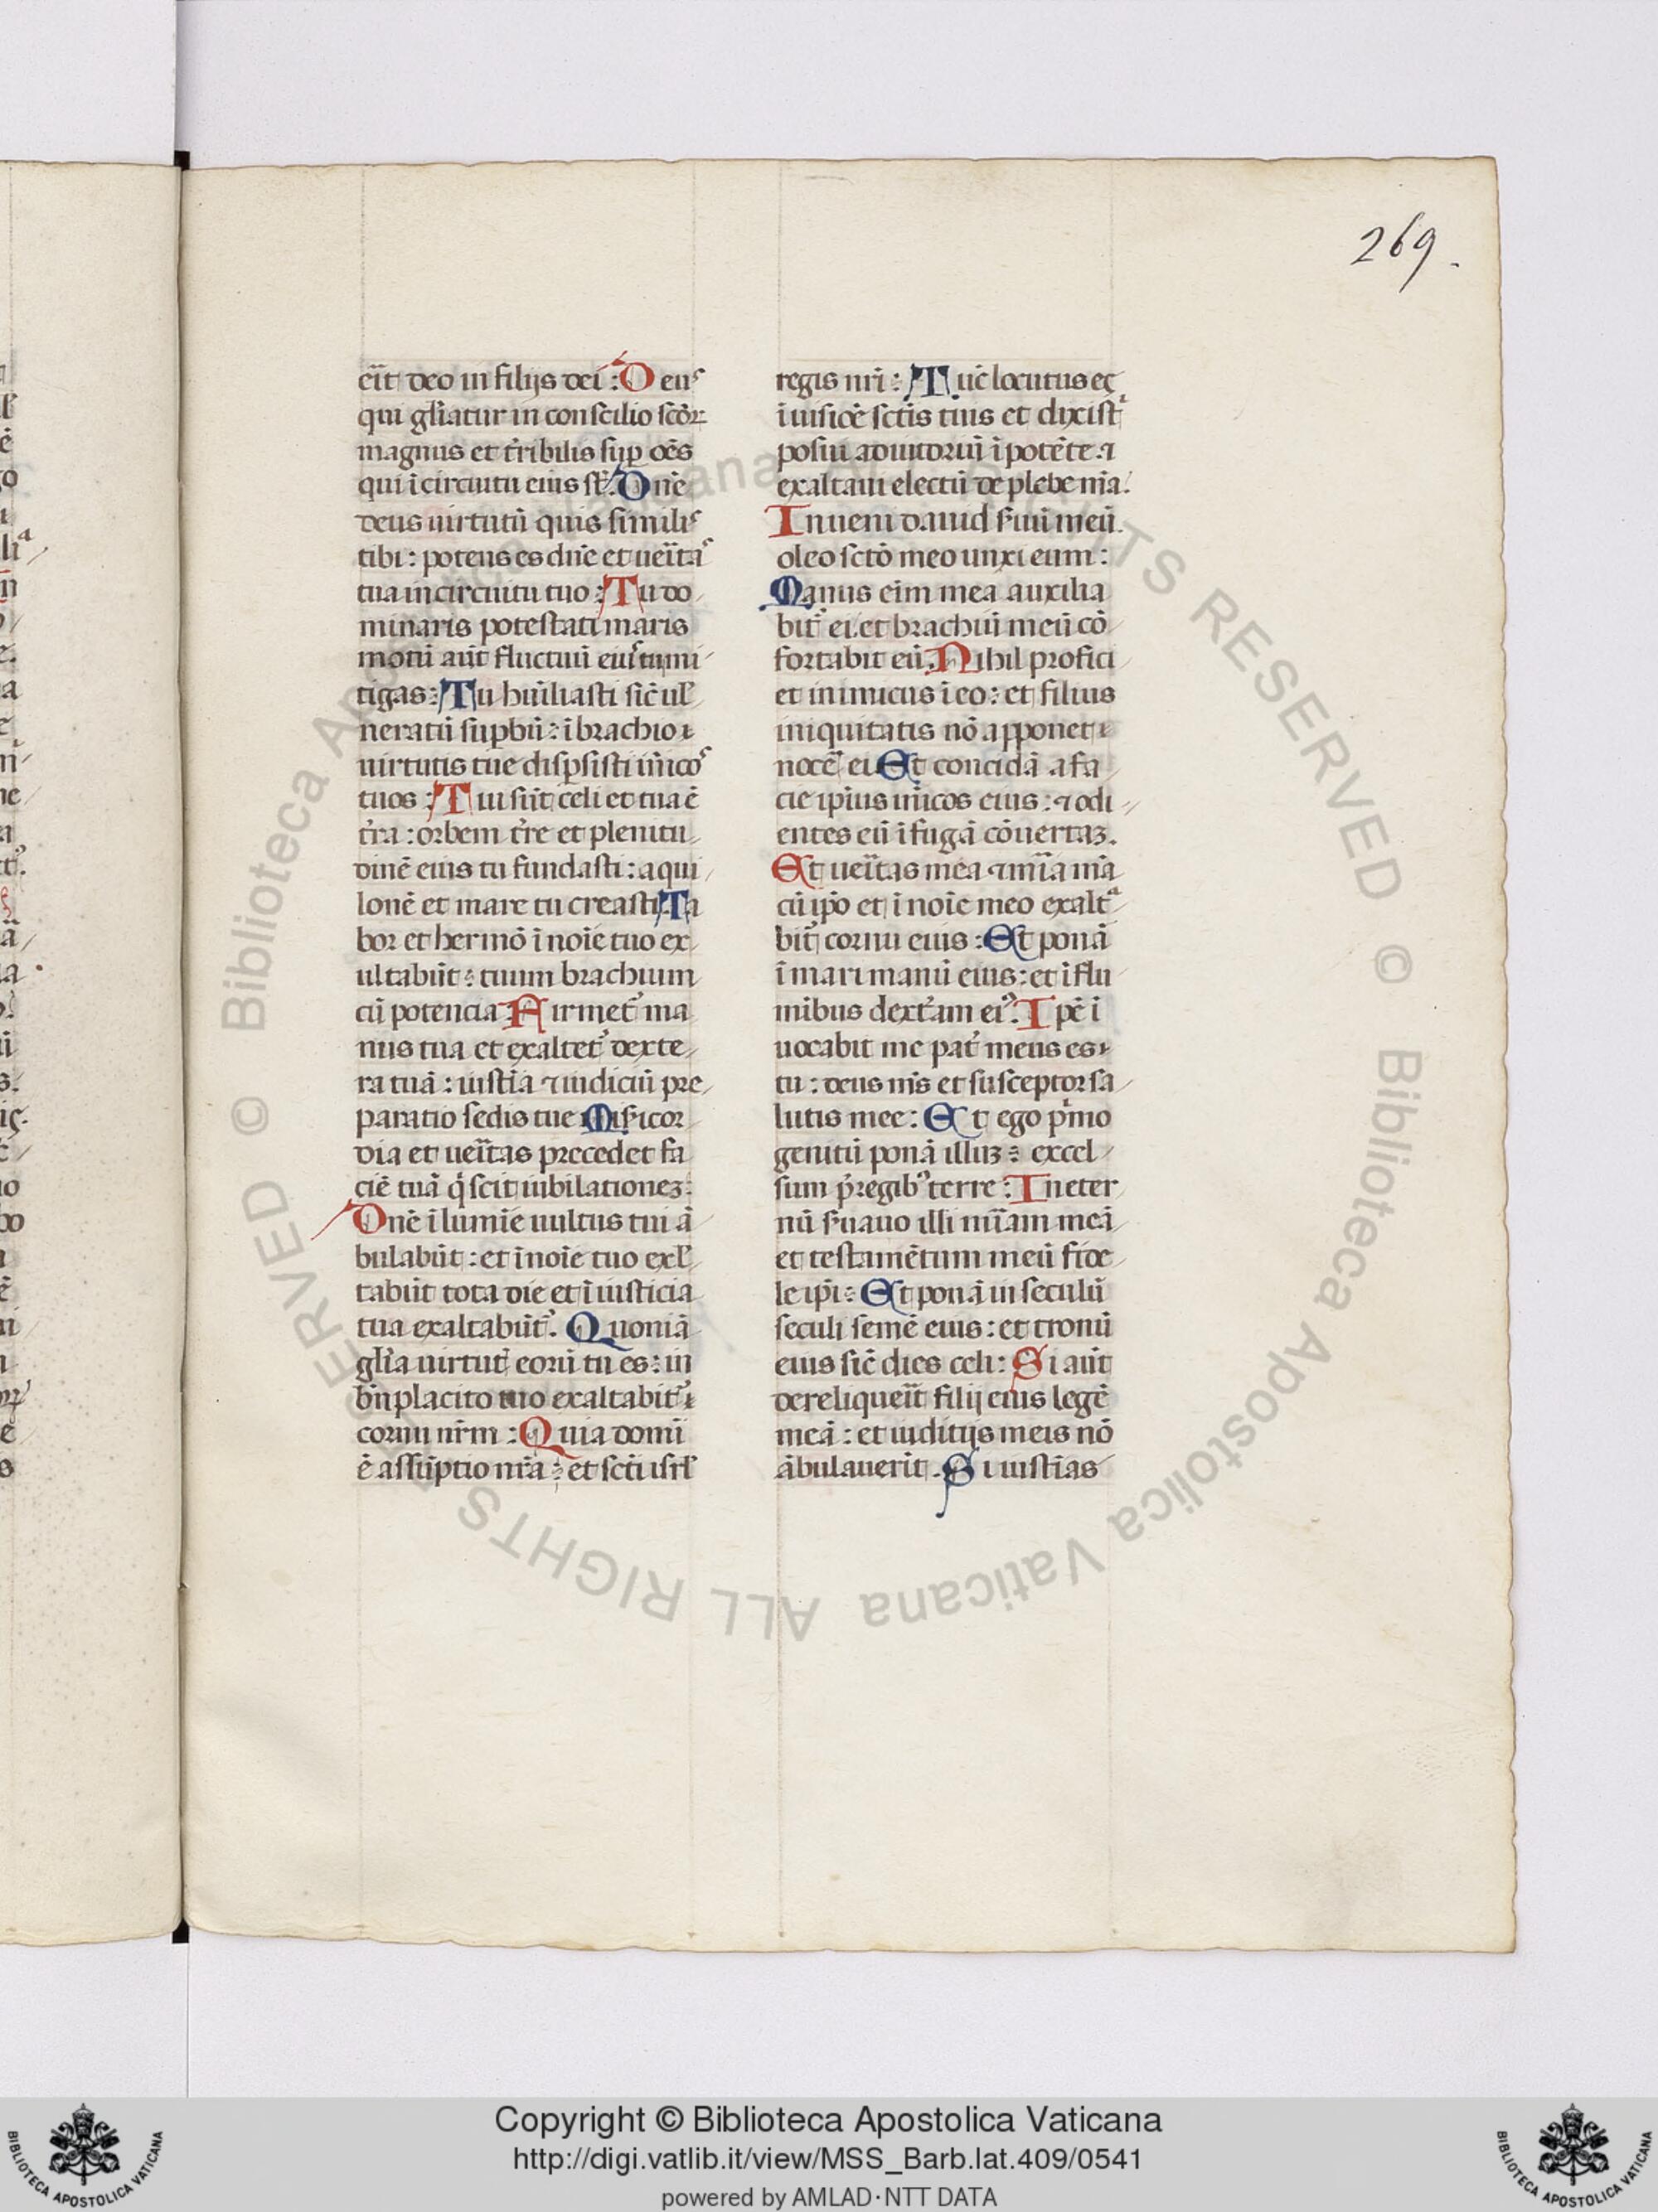 269.
eit̄ deo in filijs dei : Deus
qui gl̄iatur in conscilio sc̄oꝝ
magnus et t̄ribilis sup oēs
qui ī circuitu eius st̄. Dn̄e
deus uirtutū quis similis
tibi : potens es dn̄e et ueīta
tua in circuitu tuo : Tu do
minaris potestati maris
motū aūt fluctuū eius tu mi
tigas : Tu hūiliasti sic̄ ul
neratū supbū : ī brachio
uirtutis tue dispsisti inīcos
tuos : Tui sūt celi et tua ē
t̄ra : orbem t̄re et plenitu
dinē eius tu fundasti : aqui
lonē et mare tu creasti Ta
bor et hermō ī noīe tuo ex
ultabūt : tuum brachium
cū potencia Firmet᷑ ma
nus tua et exaltet᷑ dexte
ra tuā : iustīa ⁊ iudiciū pre
paratio sedis tue Misicor
dia et ueītas precedet fa
ciē tuā q̇ scit iubilationeꝫ :
Dn̄e ī lumīe uultus tui ā
bulabūt : et ī noīe tuo exl
tabūt tota die et ī iusticia
tua exaltabūt᷑. Quoniā
gl̄ia uirtut eorū tu es : in
bn̄placito tuo exaltabit᷑
cornu nr̄m : Quia domī
ē assūptio nr̄a : et sc̄ti isrl
regis nr̄i : Tūc locutus es
ī uisiōe sc̄tis tuis et dixist
posui adiutoriū ī potēte ⁊
exaltaui electū de plebe m̄a.
Inueni dauid s̄uū meū.
oleo sc̄to meo unxi eum :
Manus eīm mea auxilia
bit᷑ ei . et brachiū meū cō
fortabit eū . Nihil profici
et inimicus ī eo : et filius
iniquitatis nō apponet
nocē ei Et concidā a fa
cie ipīus inīcos eius : ⁊ odi
entes eū ī fugā cōuertaꝫ.
Et ueītas mea ⁊ mīa mā
cū ip̄o et ī noīe meo exalta
bit᷑ cornu eius : Et ponā
ī mari manū eius : et ī flu
minibus dext᷑am ei᷒. Ip̄e ī
uocabit me pat᷑ meus es
tu : deus m̄s et susceptor sa
lutis mee : Et ego pimo
genitū ponā illuꝫ : excel
sum p̄ regib᷒ terre : In eter
nū s̄uabo illi mīam meā
et testamētum meū fide
le ip̄i : Et ponā in seculū
seculi semē eius : et tronū
eius sic̄ dies celi : Si aūt
dereliqueīt filij eius legē
meā : et iuditijs meis nō
ābulauerīt . Si iustīas
Copyright © Biblioteca Apostolica Vaticana
http://digi.vatlib.it/view/MSS_Barb.lat.409/0541
powered by AMLAD·NTT DATA
© Biblioteca Apostolica Vaticana ALL RIGHTS RESERVED
© Biblioteca Apostolica Vaticana ALL RIGHTS RESERVED
BIBLIOTECA APOSTOLICA VATICANA
BIBLIOTECA APOSTOLICA VATICANA